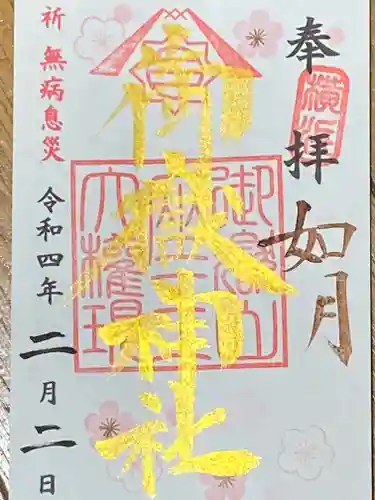 奉拝
横浜
如月
御嶽神社
御嶽山
蔵王
大権現
祈 無病息災
令和四年二月二日